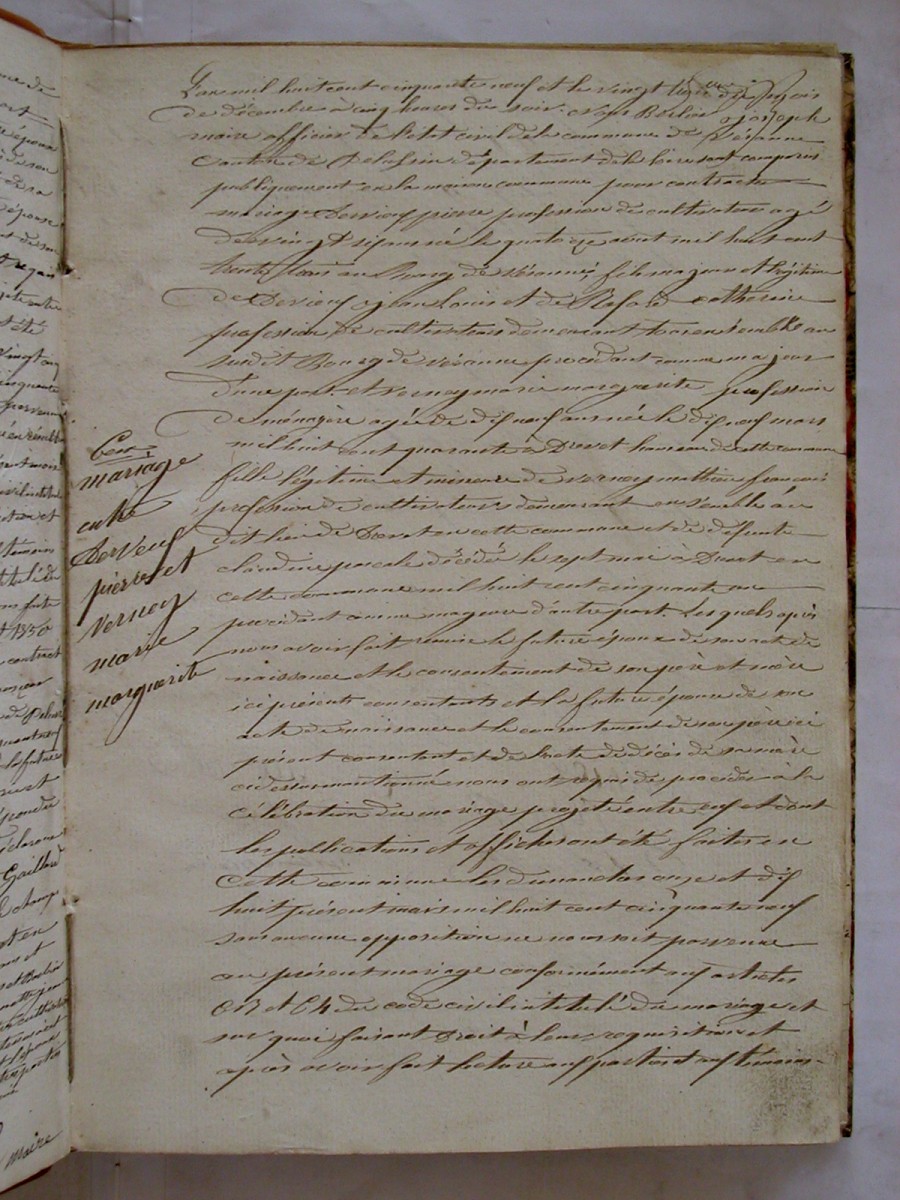 L'an mil huit cent cinquante neuf et le vingt du mois
de décembre à cinq heures du soir. Nous Berlier joseph
maire officier de l'état civil de la commune de Véranne
canton de Pelussin département de la loire sont comparus
publiquement en la maison commune pour contracter
mariage Dervieux pierre profession de cultivateur agé
de vingt six ans né le quatorze aout mil huit cent
trente trois au Bourg de Véranne, fils majeur et légitime
de Dervieux jean Louis et de catherine
profession de cultivateurs demeurant tous ensemble au
susdit Bourg de véranne procédant comme majeur
d'une part. et verney marie marguerite profession
de ménagère agée de dix neuf ans née le dix neuf mars
mil huit cent quarante à Drevet hameau de cette commune
fille légitime et mineure de verney mathieu françois
profession de cultivateurs demeurant ensemble au
dit lieu de Drevet en cette commune et de défunte
claudine décédée le sept mai à Drevet en
cette commune mil huit cent cinquante
procédant comme mageure d'autre part. Lesquels après
nous avoir fait le futur époux de son acte de
naissance et le consentement de son père et mère
ici présents consentants et la future épouse de son
acte de naissance et le consentement de son père ici
présent consentant et de l'acte de décès de sa mère
ci dessus mentionné nous ont requis de procéder à la
célébration du mariage projeté entre eux et dont
les publications et affiches ont été faites en
cette commune les dimanches onze et dix
huit présent mois mil huit cent cinquante neuf
sans aucune opposition ne nous soit parvenue
au présent mariage conformément aux articles
63 et 64 du code civil intitulé du mariage et
sur quoi faisant Droit à leur requisition et
après avoir fait lecture aux parties et aux témoins
mariage
entre
Dervieux
pierre et
verney
marie
marguerite